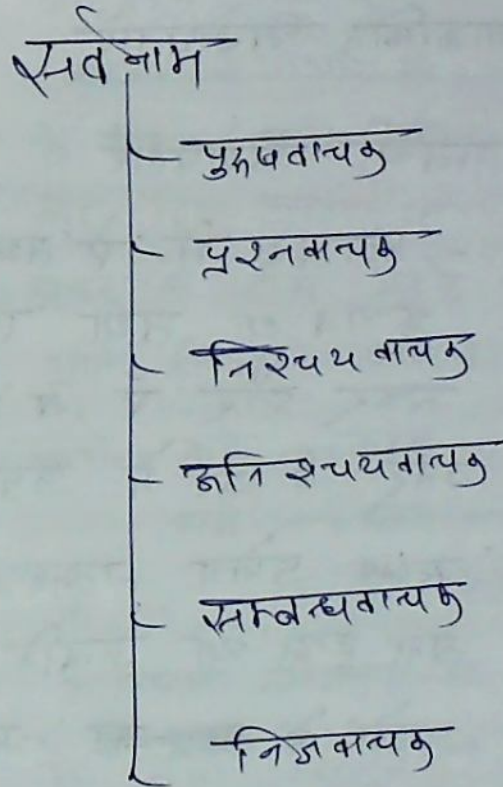 सर्वनाम
पुरुषवाचक
प्रश्नवाचक
निश्चयवाचक
अनिश्चयवाचक
सम्बन्धवाचक
निजवाचक